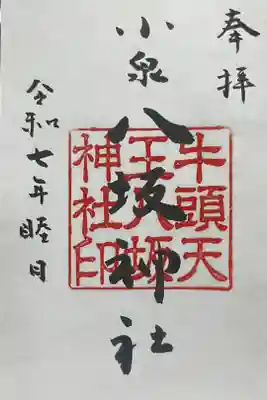 奉拝
小泉
八坂神社
令和七年睦日
牛頭天
王八坂
神社印